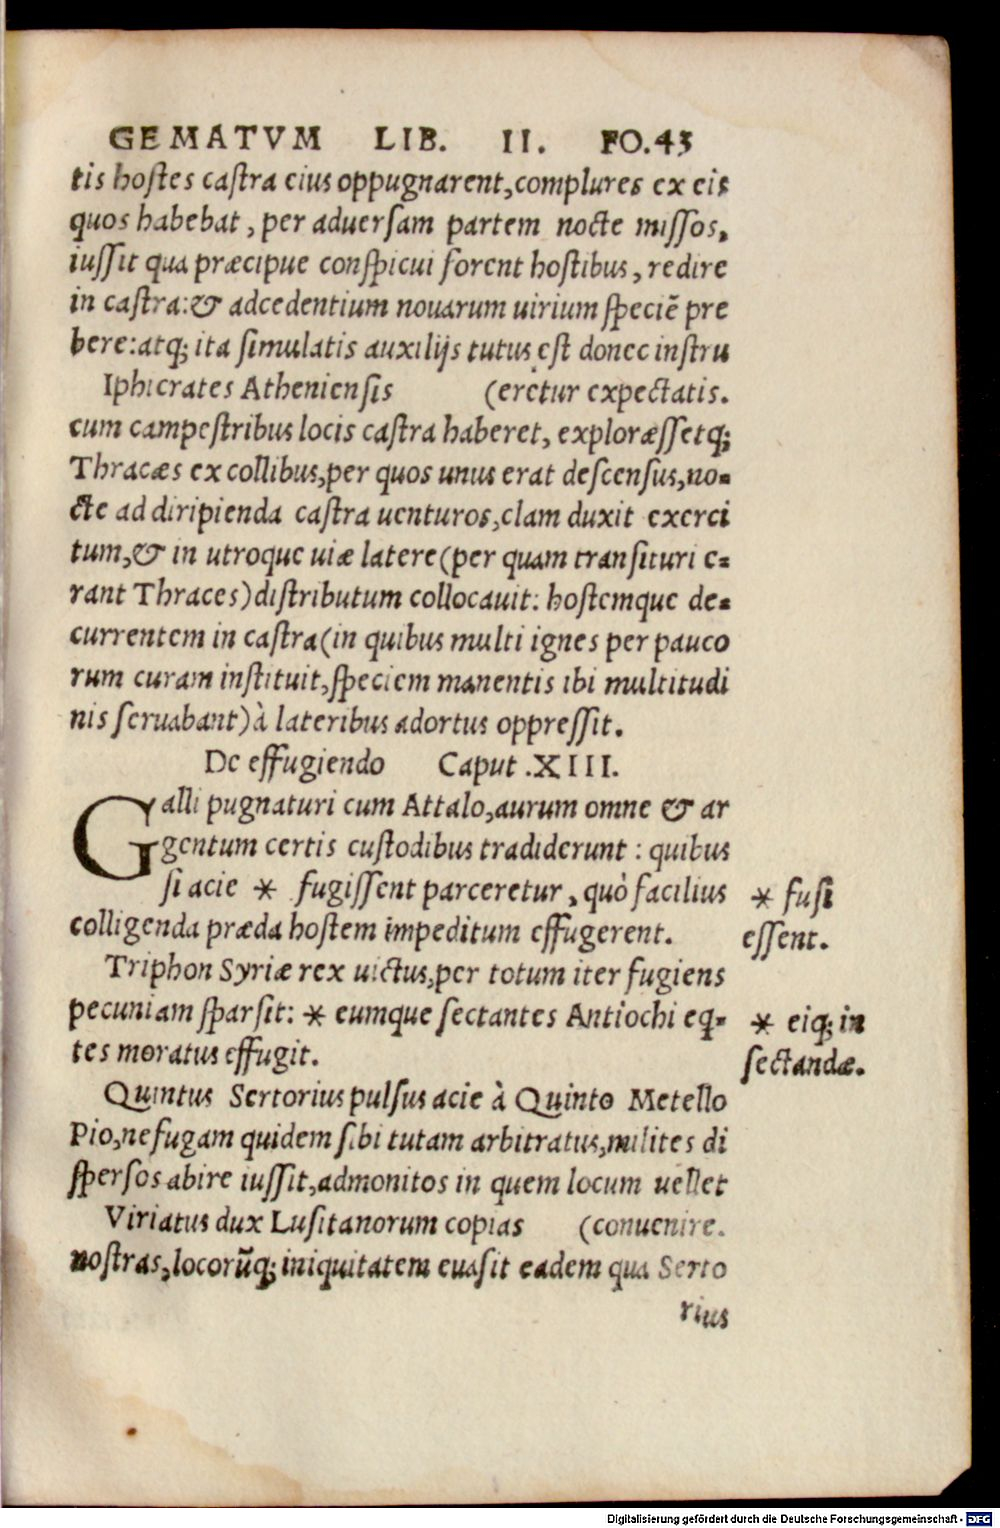 GEMATVM LIB. II. FO.43
tis hoſtes caſtra eius oppugnarent,complures ex eis
quos habebat, per aduerſam partem nocte miſſos,
iuſſit qua præcipue conſpicui forent hoſtibus, redire
in caſtra:& adcedentium nouarum uirium ſpeciē pre
bere:atq; ita ſimulatis auxilijs tutus eſt donec inſtru
Iphicrates Athenienſis (eretur expectatis.
cum campeſtribus locis caſtra haberet, exploræſſetq;
Thracæs ex collibus,per quos unus erat deſcenſus,no=
cte ad diripienda caſtra uenturos,clam duxit exerci
tum,& in utroque uiæ latere(per quam tranſituri e=
rant Thraces)diſtributum collocauit: hoſtemque de=
currentem in caſtra(in quibus multi ignes per pauco
rum curam inſtituit,ſpeciem manentis ibi multitudi
nis ſeruabant)à lateribus adortus oppreſſit.
De effugiendo Caput .XIII.
Galli pugnaturi cum Attalo,aurum omne & ar
gentum certis cuſtodibus tradiderunt : quibus
ſi acie * fugiſſent parceretur, quò facilius
* fuſi
colligenda præda hoſtem impeditum effugerent.
eſſent.
Triphon Syriæ rex uictus,per totum iter fugiens
pecuniam ſparſit: * eumque ſectantes Antiochi eq=
* eiq; in
tes moratus effugit.
ſectandæ.
Quintus Sertorius pulſus acie à Quinto Metello
Pio,ne fugam quidem ſibi tutam arbitratus,milites di
ſperſos abire iuſſit,admonitos in quem locum uellet
Viriatus dux Luſitanorum copias (conuenire.
noſtras,locorūq; iniquitatem euaſit eadem qua Serto
rius
Digitalisierung gefördert durch die Deutsche Forschungsgemeinschaft - DFG